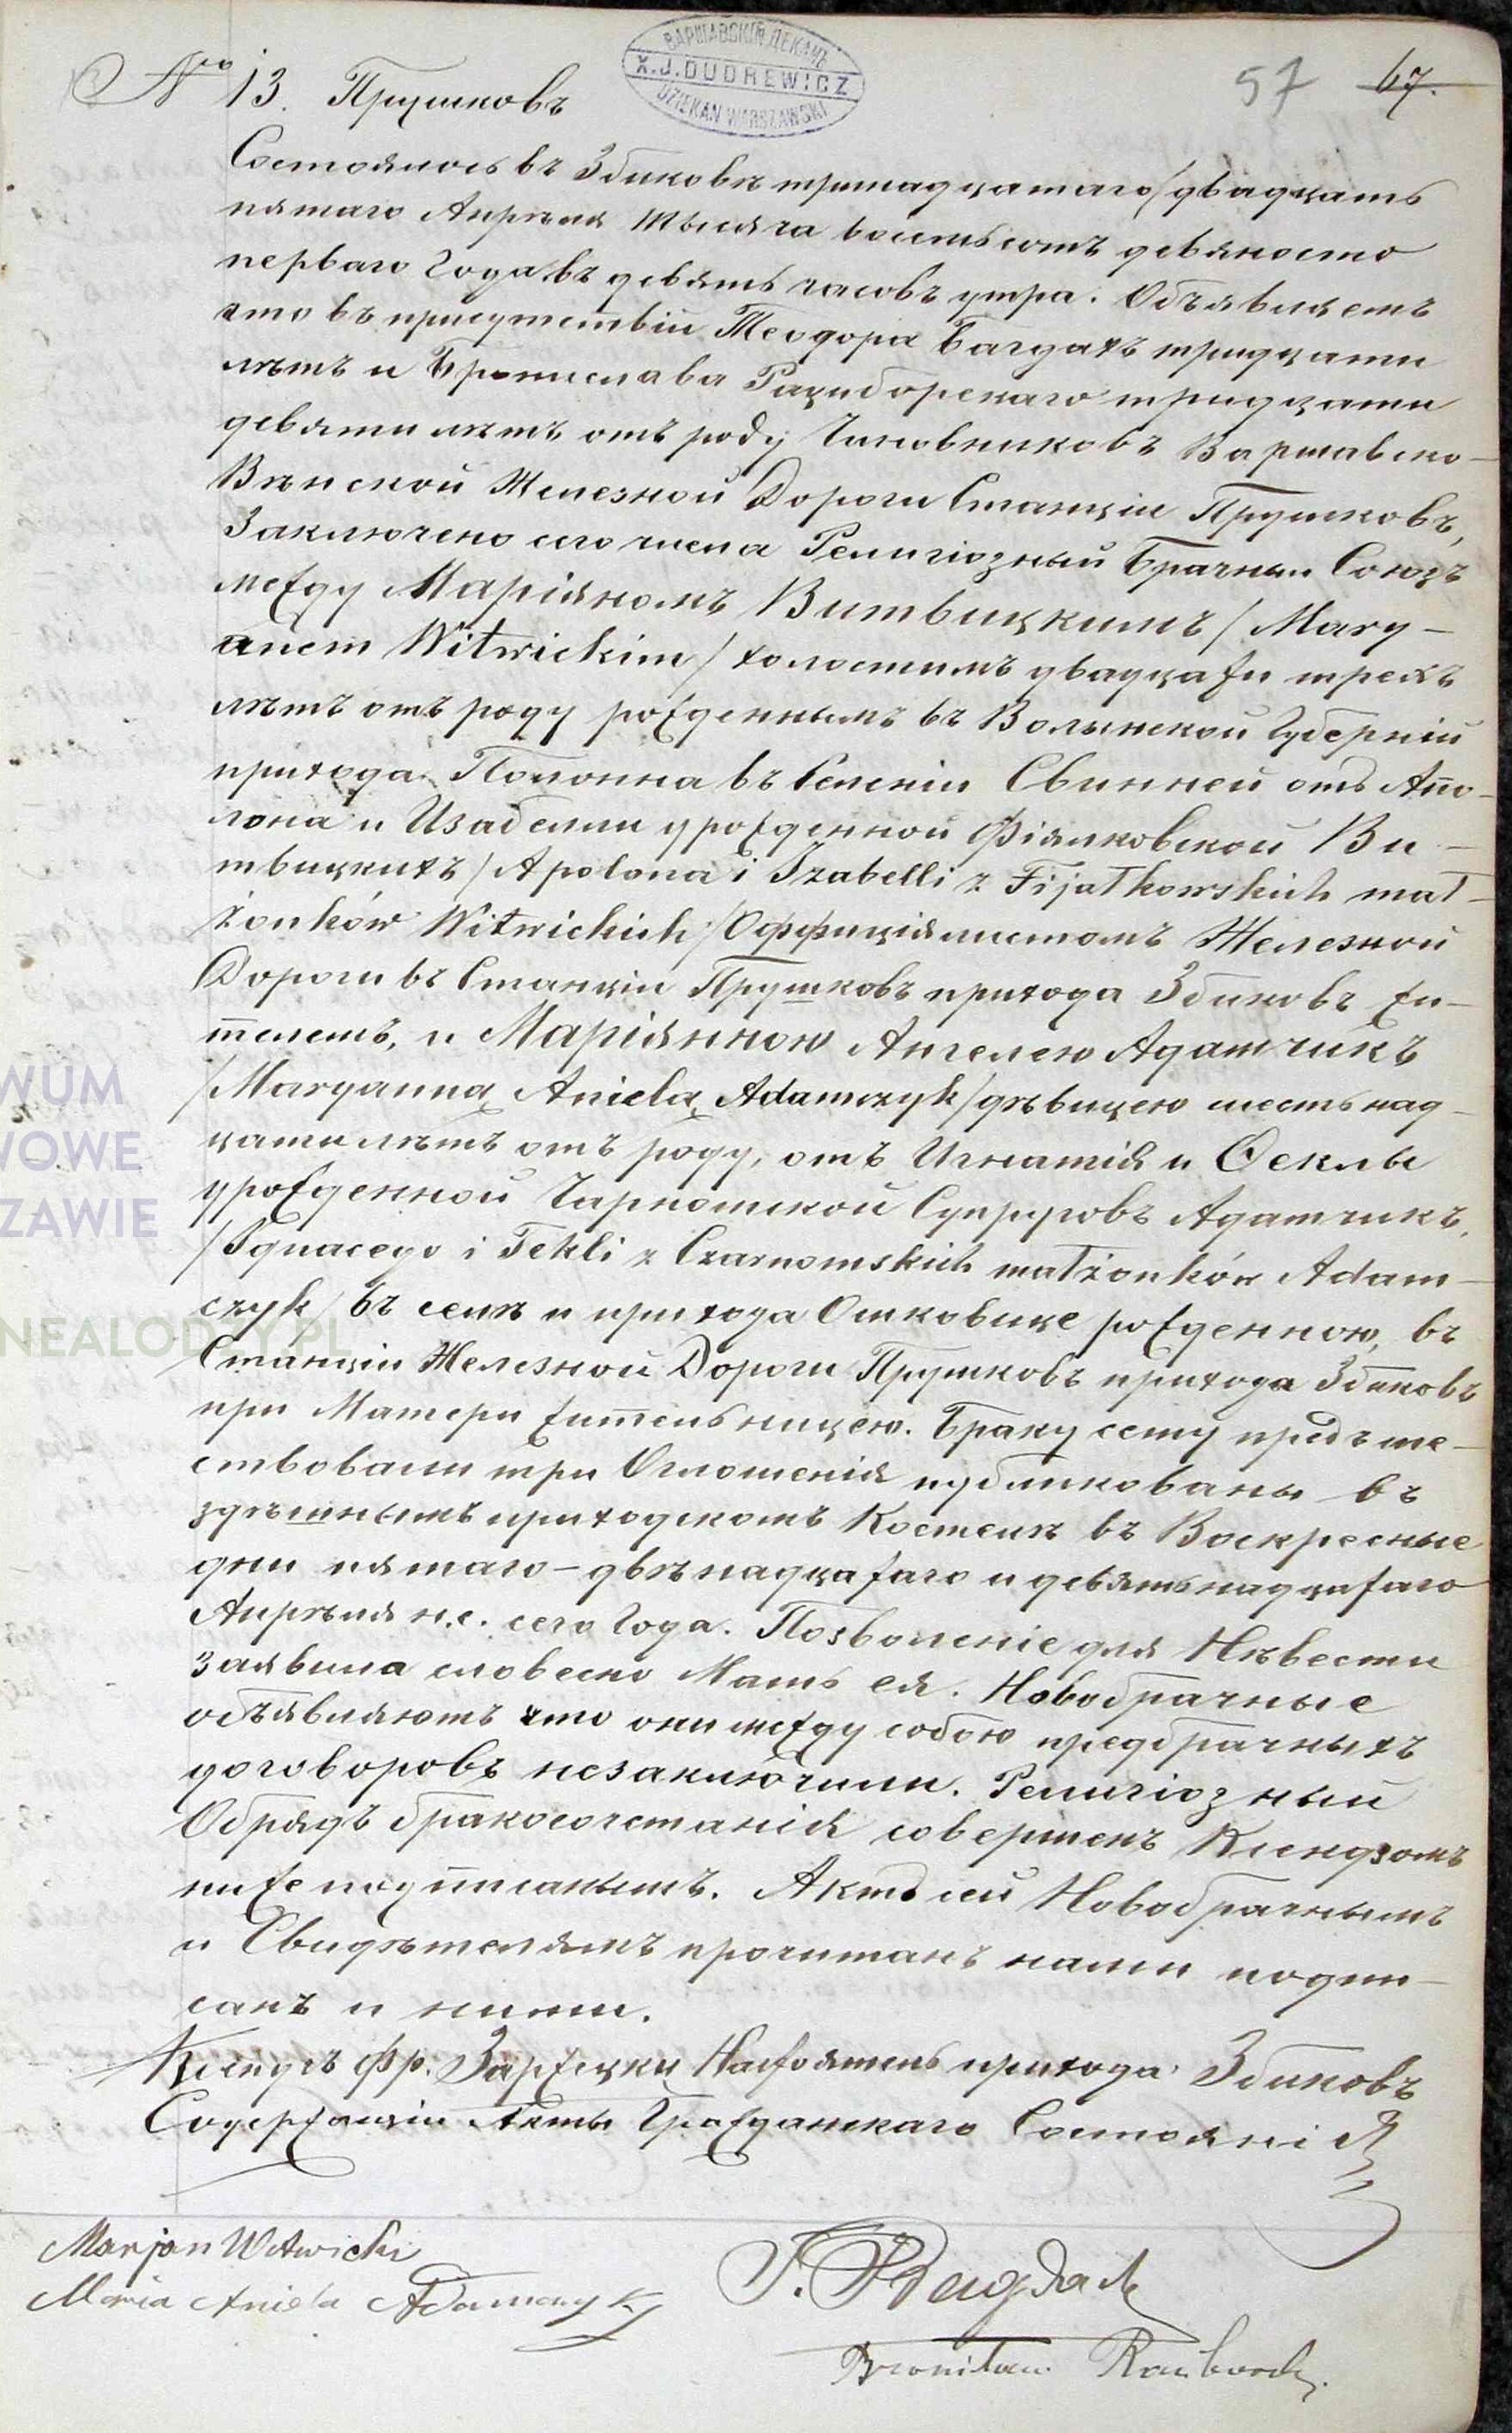 ВАРШАВСКІЙ ДЕКАНЪ
X. J. DUDREWICZ
DZIEKAN WARSZAWSKI
57 67.
№ 13. Прушковъ
Состоялось въ Збиковѣ тринадцатаго/двадцать
пятаго Апрѣля тысяча восемьсотъ девяносто
перваго Года въ девять часовъ утра. Объявляемъ
что въ присутствіи Теодора Багдахъ тридцати
лѣтъ и Бронислава Рациборскаго тридцати
девяти лѣтъ отъ роду Чиновниковъ Варшавско-
Вѣнской Железной Дороги Станціи Прушковъ,
Заключено сего числа Религіозный Брачный Союзъ
между Маріяномъ Витвицкимъ /Mary-
anem Witwickim/ холостымъ двадцати трехъ
лѣтъ отъ роду рожденнымъ въ Волынской Губерніи
прихода Полонна въ Селеніи Свинней отъ Апо-
лона и Изабеллы урожденной Фіялковской Ви-
твицкихъ /Apolona i Izabelli z Fijałkowskich mał-
żonków Witwickich/ Оффиціялистомъ Железной
Дороги въ Станціи Прушковъ прихода Збиковъ жи-
телемъ, и Маріянною Ангелею Адамчикъ
/Maryanną Anielą Adamczyk/ дѣвицею шестьнад-
цати лѣтъ отъ роду, отъ Игнатія и Ѳеклы
урожденной Чарномской Супруговъ Адамчикъ,
/Ignacego i Tekli z Czarnomskich małżonków Adam-
czyk/ въ селѣ и прихода Ошковице рожденною, въ
Станціи Железной Дороги Прушковъ прихода Збиковъ
при Матери жительницею. Браку сему предъше-
ствовали три Оглошенія публикованы въ
здѣшнымъ приходскомъ Костелѣ въ Воскресные
дни пятаго-двѣнадцатаго и девятьнадцатаго
Апрѣля н.с. сего Года. Позволеніе для Невѣсты
заявила словесно Мать ея. Новобрачные
объявляютъ что они между собою предбрачныхъ
договоровъ незаключили. Религіозный
Обрядъ бракосочетанія совершенъ Ксендзомъ
ниже подписанымъ. Актъ сей Новобрачнымъ
и Свидѣтелямъ прочитанъ нами подпи-
санъ и ними.
Ксендзъ Фр. Заржецки Настоятель прихода Збиковъ
Содержащій Акты Гражданскаго Состоянія
Marjan Witwicki
Maria Aniela Adamczyk
T. Bagdach
Bronisław Raciborski
WUM
WOWE
ZAWIE
NEALODZY.PL